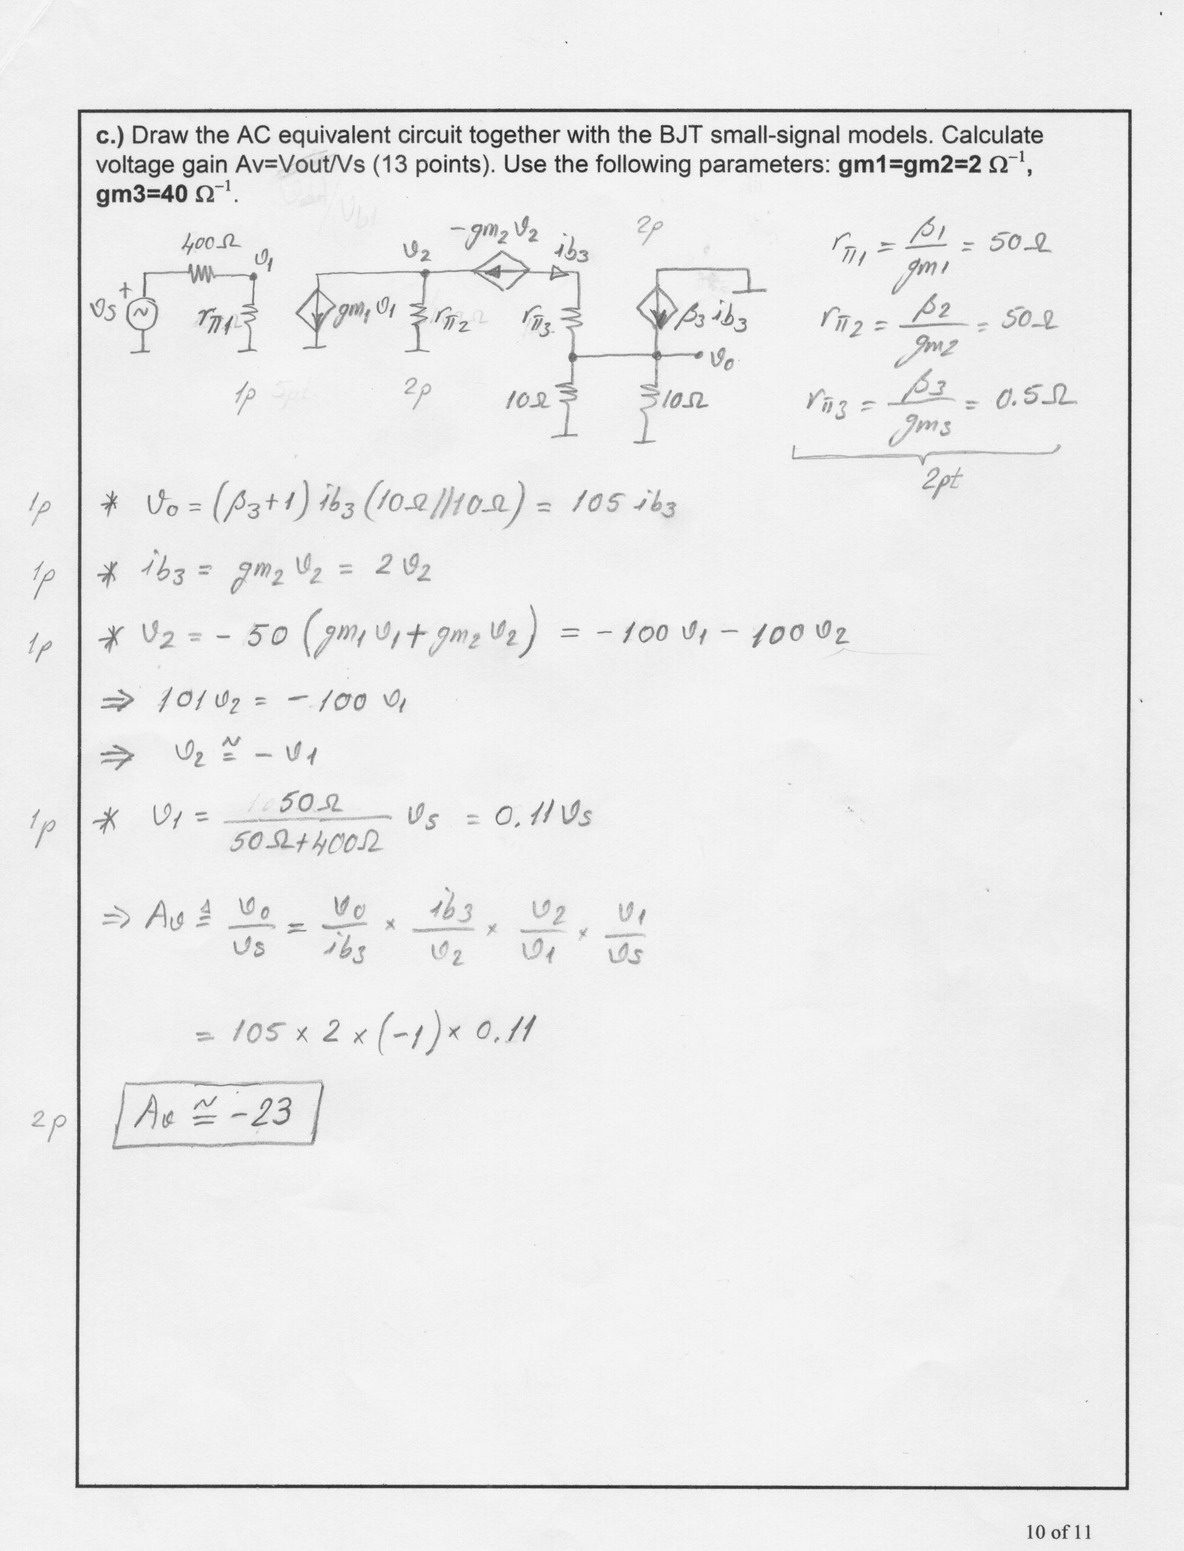 c.) Draw the AC equivalent circuit together with the BJT small-signal models. Calculate
voltage gain Av=Vout/Vs (13 points). Use the following parameters: gm1=gm2=2 Ω⁻¹,
gm3=40 Ω⁻¹.
400Ω
υ1
υs
+
rπ1
1p
gm1 υ1
υ2
rπ2
2p
-gm2 υ2
ib3
rπ3
10Ω
2p
β3 ib3
υo
10Ω
rπ1 = β1/gm1 = 50Ω
rπ2 = β2/gm2 = 50Ω
rπ3 = β3/gm3 = 0.5Ω
2pt
1p * υo = (β3+1) ib3 (10Ω//10Ω) = 105 ib3
1p * ib3 = gm2 υ2 = 2 υ2
1p * υ2 = - 50 (gm1 υ1 + gm2 υ2) = - 100 υ1 - 100 υ2
⇒ 101 υ2 = - 100 υ1
⇒ υ2 ≅ - υ1
1p * υ1 = 50Ω/(50Ω+400Ω) υs = 0.11 υs
⇒ Aυ ≜ υo/υs = υo/ib3 × ib3/υ2 × υ2/υ1 × υ1/υs
= 105 × 2 × (-1) × 0.11
2p Aυ ≅ -23
10 of 11